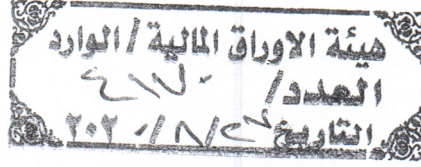 هيئة الاوراق المالية / الوارد
العدد / ٤١٧٠
التاريخ ٢٠٢٠/٨/٢٧